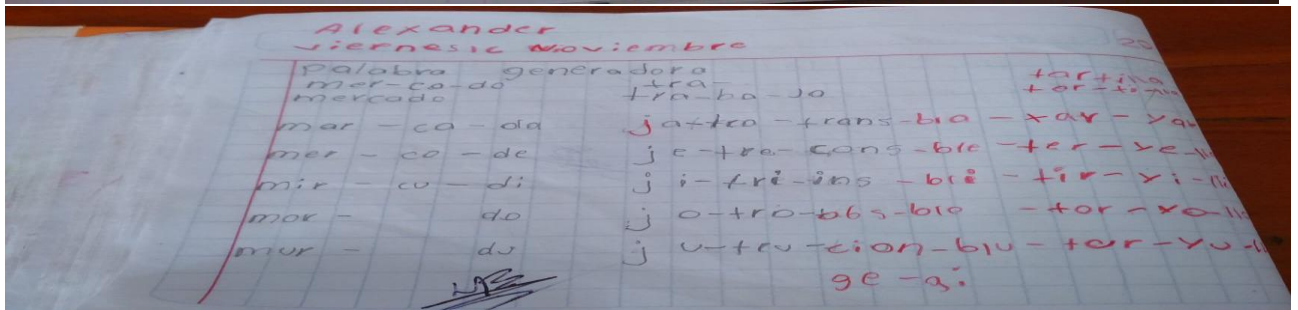 Alexander
Viernes 16 Noviembre 20
Palabra generadora
mer-ca-do tra- tortilla
mercado tra-ba-jo
mar - ca - da ja-tra-trans-bla - tar - ya
mer - co - de je-tre-cons-ble-ter-ye-
mir - cu - di ji-tri-ins-bli-tir-yi-lli
mor - do jo-tro-obs-blo-tor-yo-llo
mur - du ju-tru-cion-blu-tur-yu-
ge-gi